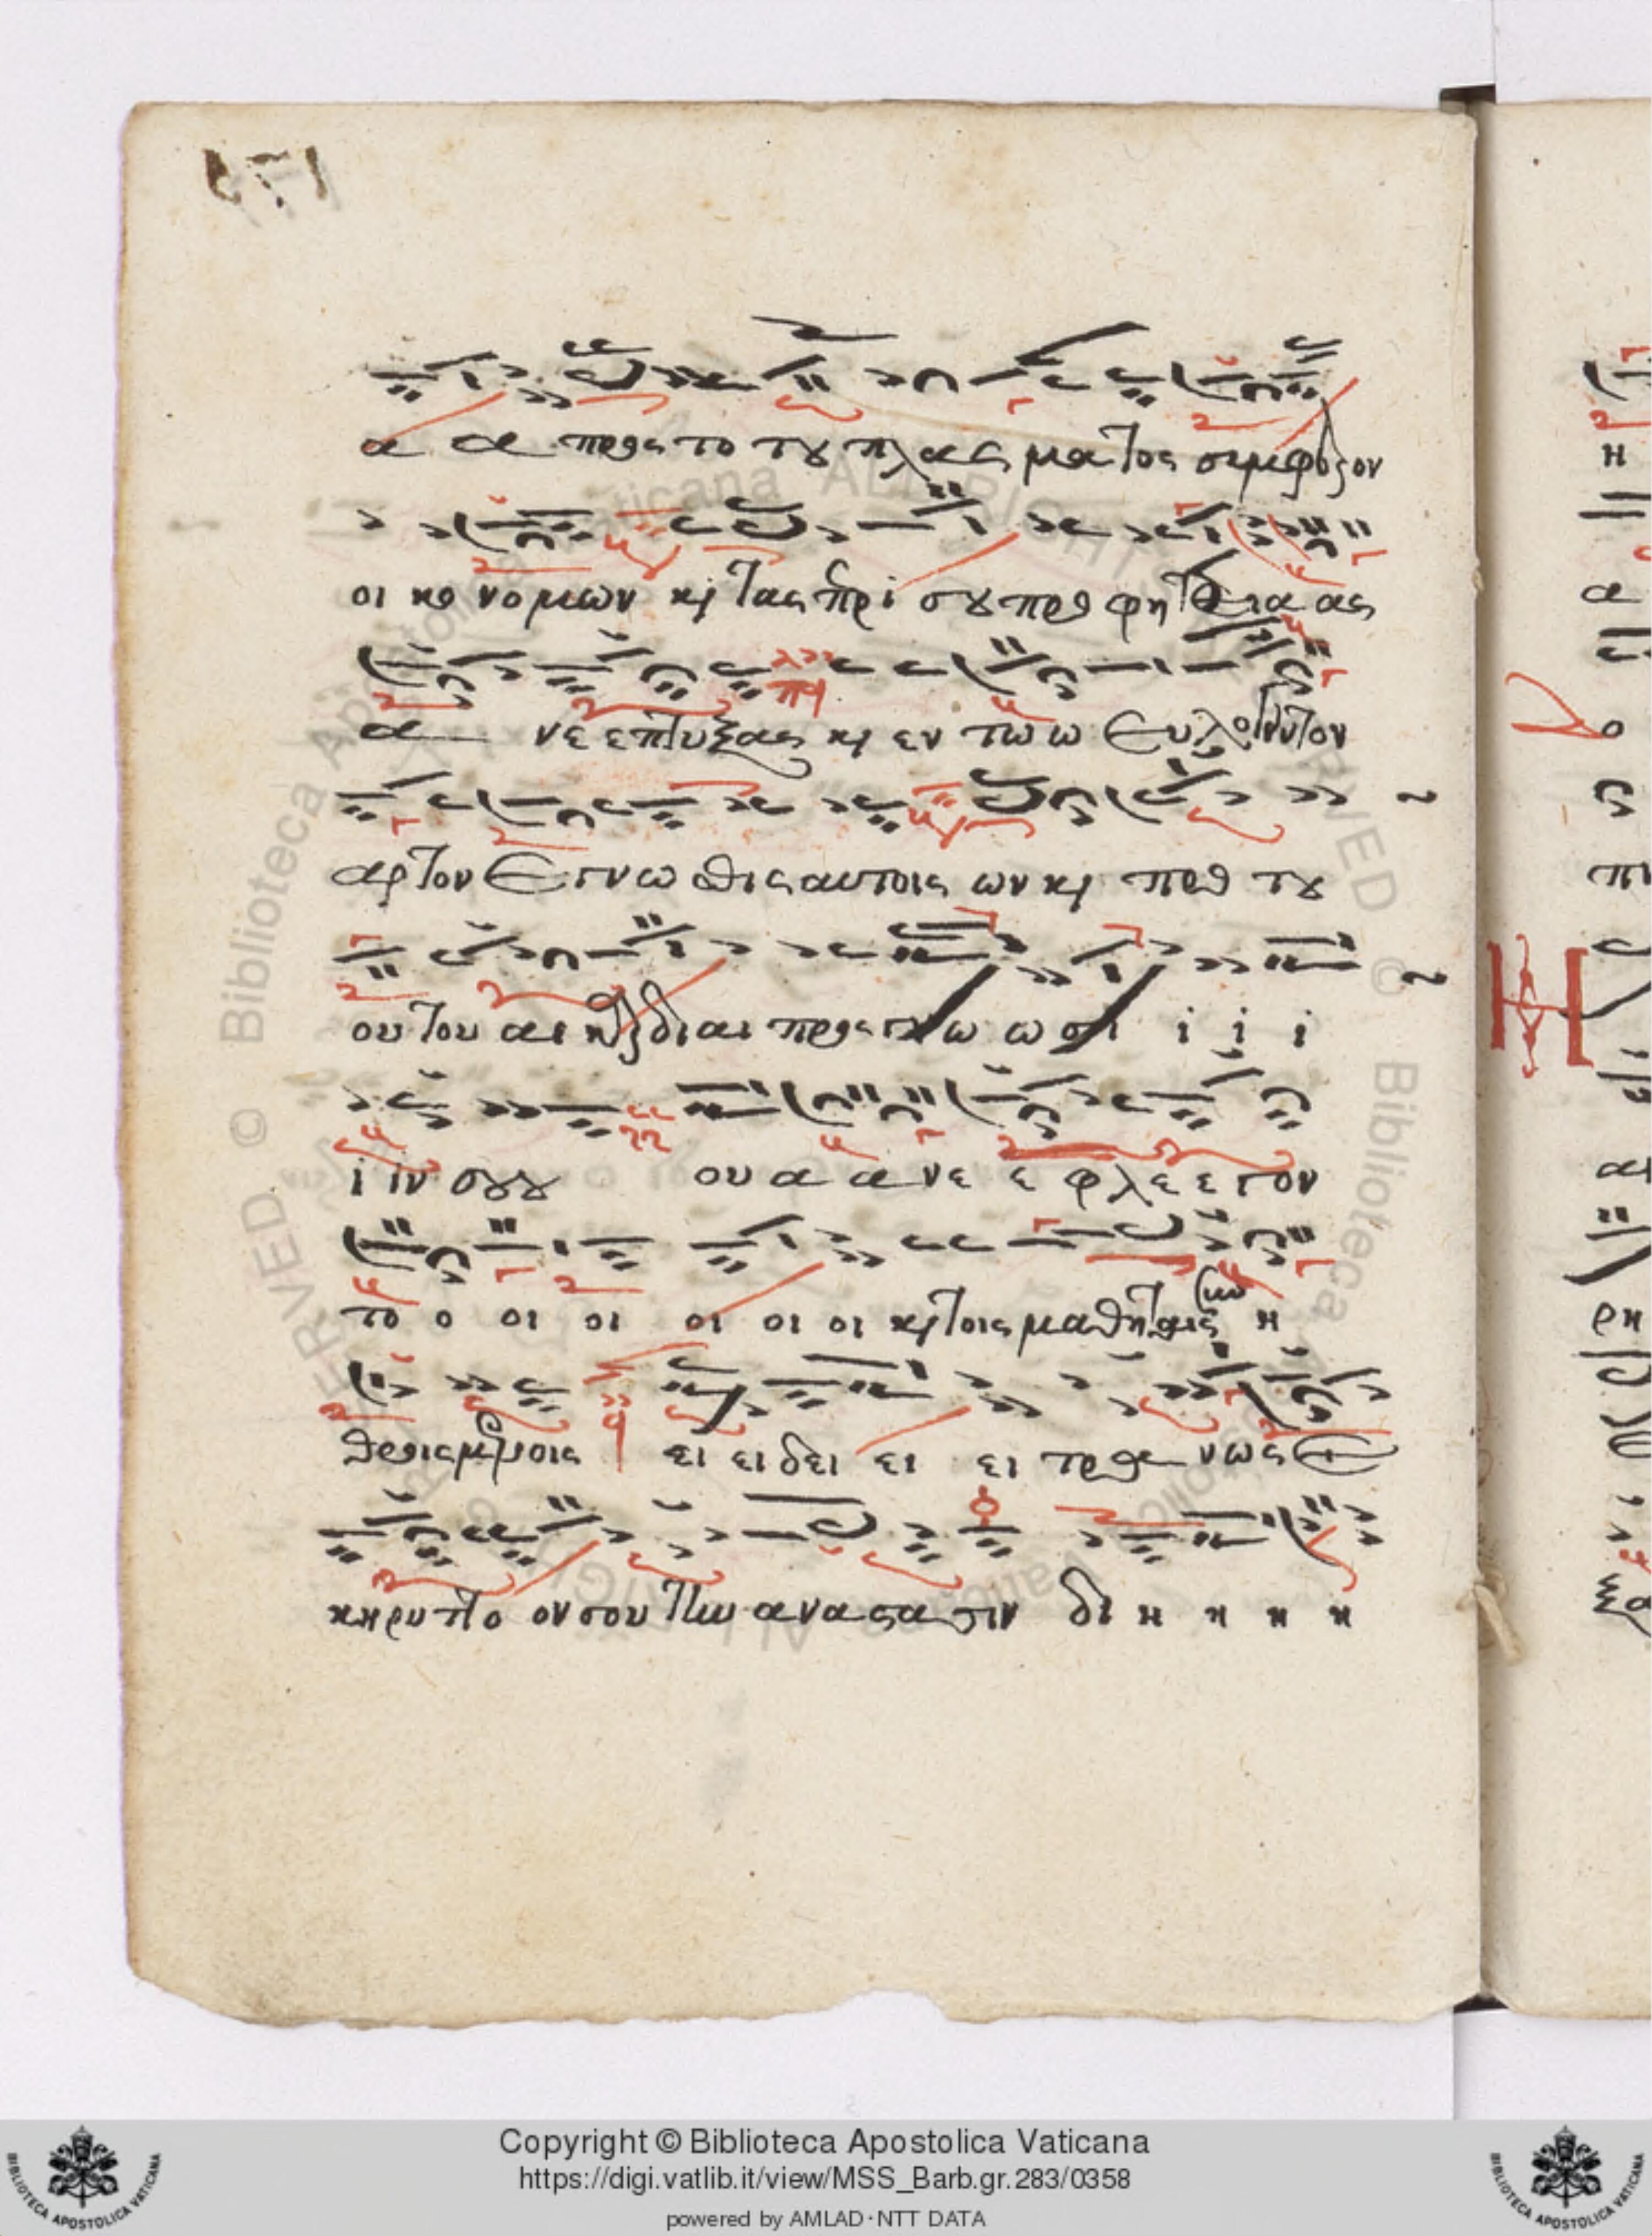 α α προς το του πλασ ματος συμφερον
οι κο νο μων και τας περι σου προ φητειαα ας
α νε επτυξας και εν τω ω ευλογειν τον
αρτον εγνω σθης αυτοις ων και προ του
ου του αι καρδιαι προς γνω ω σι ι ι ι
ι ιν σου ου α α νε ε φλε ε γον
το ο οι οι οι οι οι και τοις μαθηταις η
θροισμενοις ει ει δει ει ει τρα νως ε
κηρυττο ον σου την ανα στα σιν δι η η η η
Copyright © Biblioteca Apostolica Vaticana
https://digi.vatlib.it/view/MSS_Barb.gr.283/0358
powered by AMLAD·NTT DATA